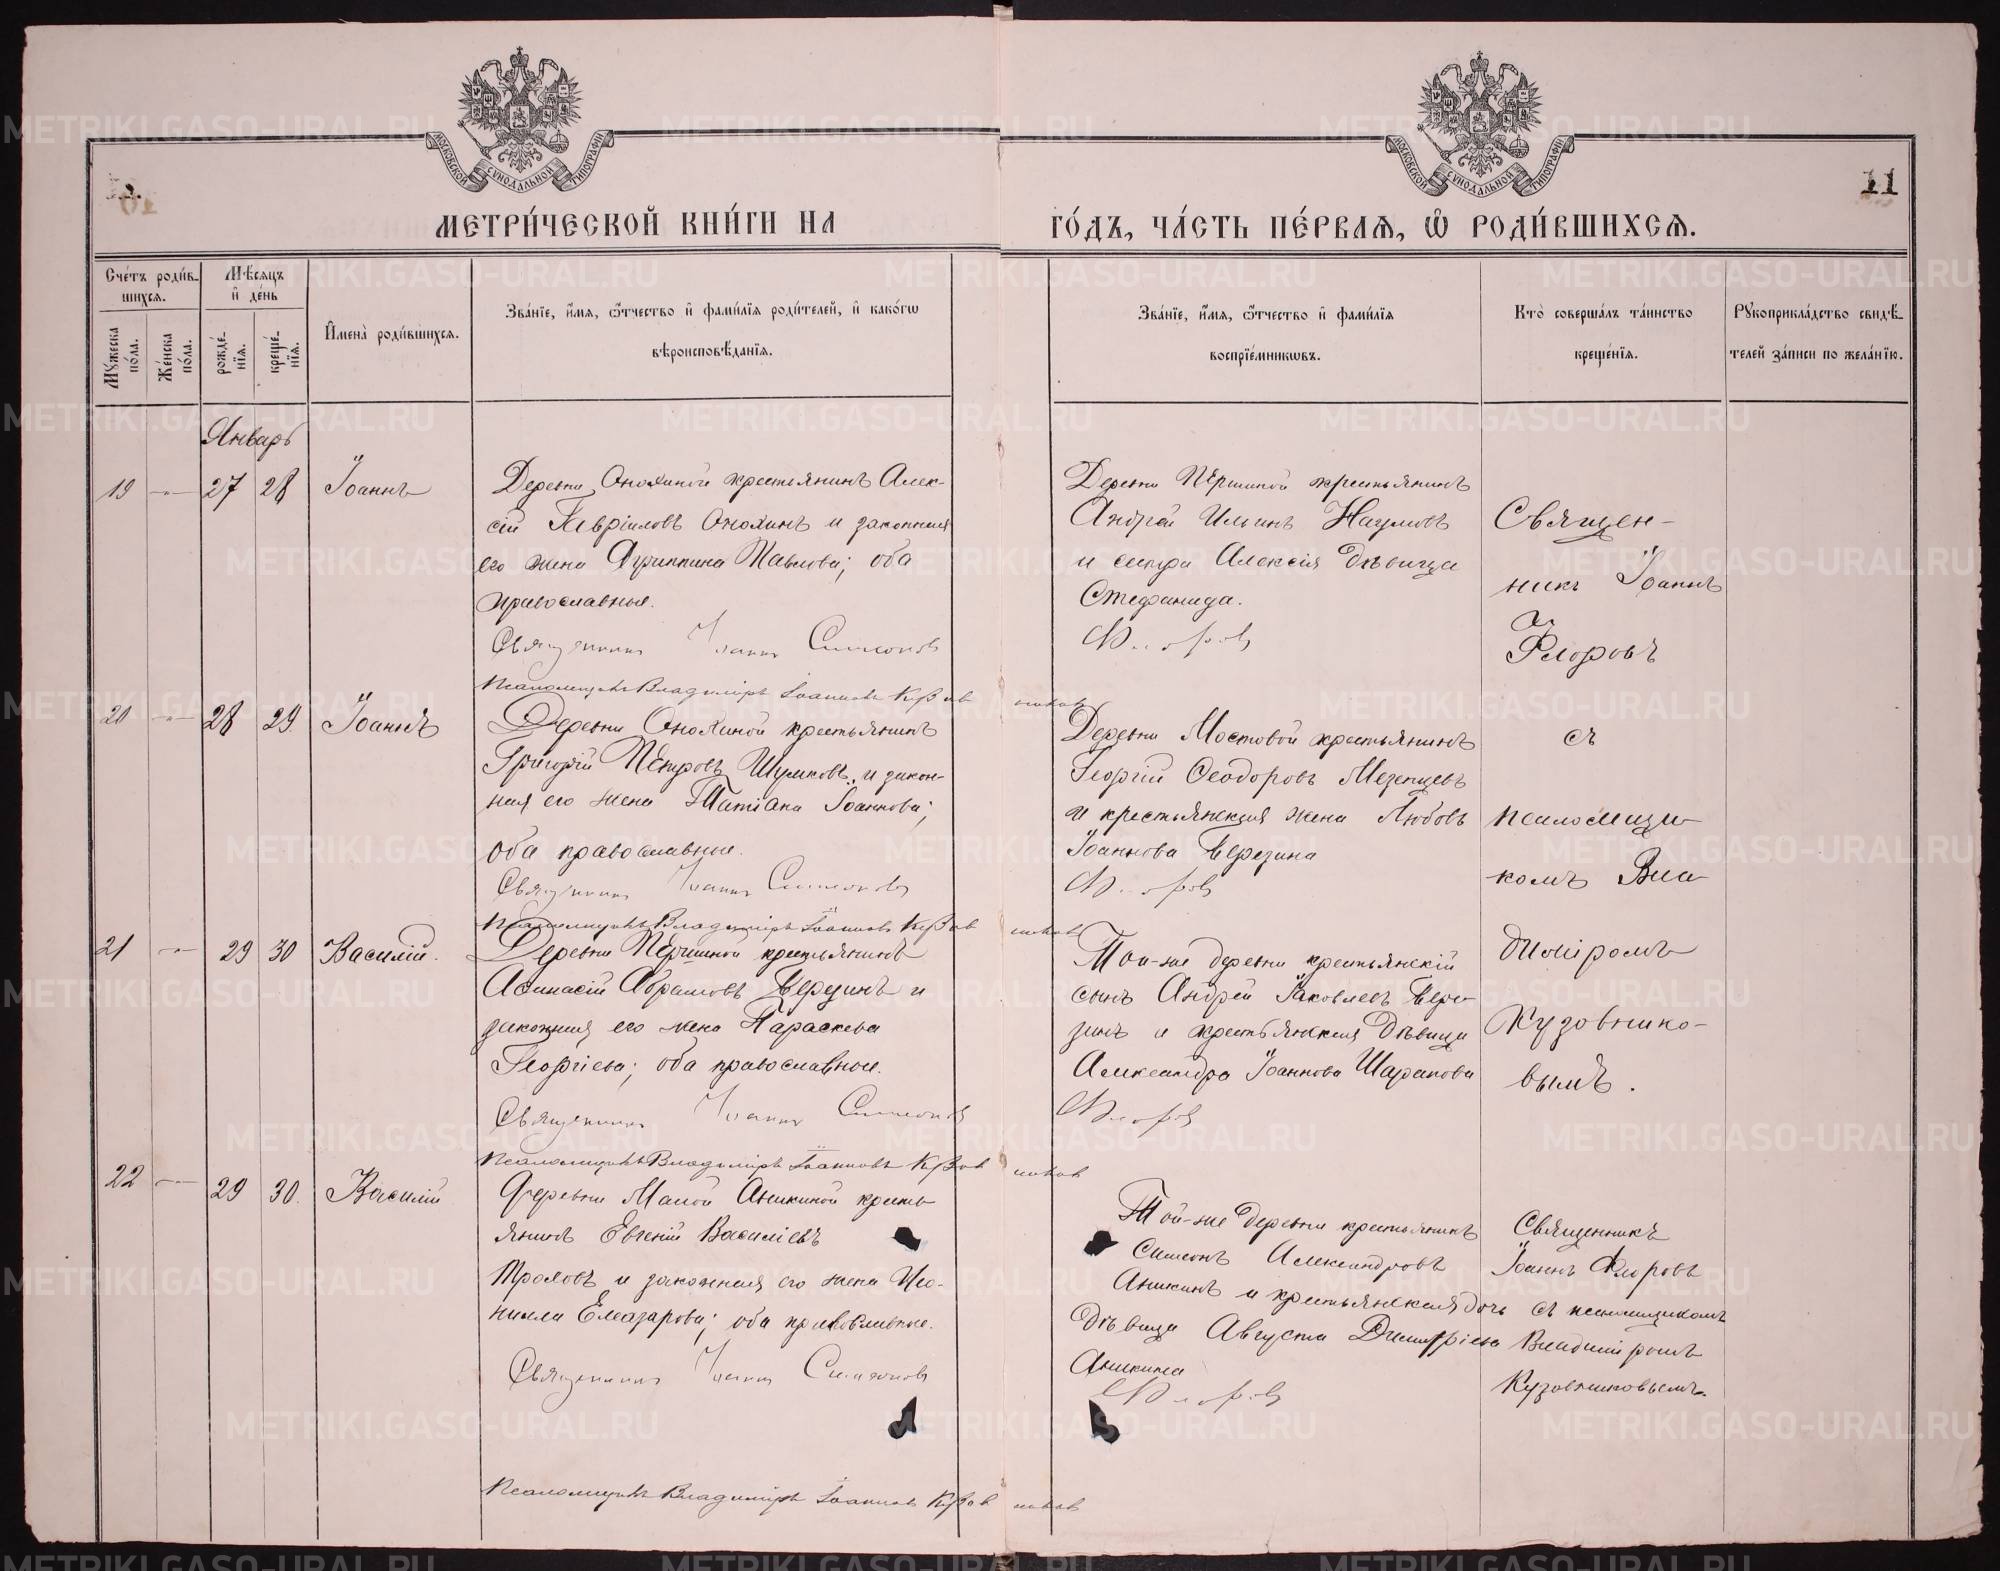 МОСКОВСКОЙ СѴНОДАЛЬНОЙ ТИПОГРАФІИ
МОСКОВСКОЙ СѴНОДАЛЬНОЙ ТИПОГРАФІИ
11
МЕТРИ́ЧЕСКОЙ КНИ́ГИ НА
ГО́ДЪ, ЧА́СТЬ ПЕ́РВАѦ, Ѽ РОДИ́ВШИХСѦ.
Сче́тъ роди́в-
шихсѧ.
Мѣ́сѧцъ
и҆ де́нь
Мꙋ́жеска
по́ла.
Же́нска
по́ла.
рожде́-
нїѧ.
креще́-
нїѧ.
И҆мена̀ роди́вшихсѧ.
Зва́нїе, и҆́мѧ, ѻ҆́тчество и҆ фами́лїѧ роди́телей, и҆ како́гѡ
вѣроисповѣ́данїѧ.
Зва́нїе, и҆́мѧ, ѻ҆́тчество и҆ фами́лїѧ
воспрїе́мникѡвъ.
Кто̀ соверша́лъ та́инство
креще́нїѧ.
Рꙋкоприкла́дство свидѣ́-
телей за́писи по жела́нїю.
Январь
19 -"- 27 28 Іоаннъ
Деревни Онохиной крестьянинъ Алек-
сій Гавріиловъ Онохинъ и законная
его жена Агриппина Павлова; оба
православные.
Священникъ Іоаннъ Симеоновъ
Флоровъ
Псаломщикъ Владиміръ Іоанновъ Кузовниковъ
Деревни Першиной крестьянинъ
Андрей Ильинъ Наумовъ
и сестра Алексія дѣвица
Стефанида.
Священ-
никъ Іоаннъ
Флоровъ
съ
псаломщи-
комъ Вла-
диміромъ
Кузовнико-
вымъ.
20 -"- 28 29 Іоаннъ
Деревни Онохиной крестьянинъ
Григорій Петровъ Шумковъ и закон-
ная его жена Татіана Іоаннова;
оба православные.
Священникъ Іоаннъ Симеоновъ
Флоровъ
Псаломщикъ Владиміръ Іоанновъ Кузовниковъ
Деревни Мостовой крестьянинъ
Георгій Ѳеодоровъ Мезенцевъ
и крестьянская жена Любовь
Іоаннова Березина
21 -"- 29 30 Василій.
Деревни Першиной крестьянинъ
Аѳанасій Абрамовъ Березинъ и
законная его жена Параскева
Георгіева; оба православные.
Священникъ Іоаннъ Симеоновъ
Флоровъ
Псаломщикъ Владиміръ Іоанновъ Кузовниковъ
Той-же деревни крестьянскій
сынъ Андрей Іаковлевъ Бере-
зинъ и крестьянская дѣвица
Александра Іоаннова Шарапова
22 -"- 29 30. Василій
Деревни Малой Аникиной кресть-
янинъ Евгеній Василіевъ
и законная его жена Нео-
нилла Елеазарова; оба православные.
Священникъ Іоаннъ Симеоновъ
Флоровъ
Псаломщикъ Владиміръ Іоанновъ Кузовниковъ
Той-же деревни крестьянинъ
Симеонъ Александровъ
Аникинъ и крестьянская дочь
дѣвица Августа Димитріева
Аникина
Священникъ
Іоаннъ Флоровъ
съ псаломщикомъ
Владиміромъ
Кузовниковымъ.
METRIKI.GASO-URAL.RU